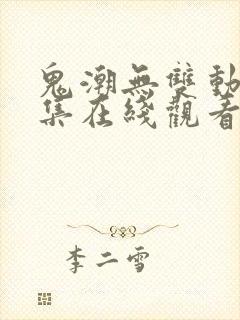 鬼潮無雙動
集在綫觀看
李二雪